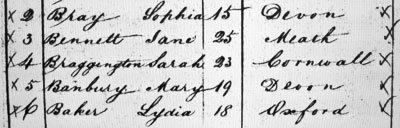 x 2 Bray Sophia 15 Devon x
x 3 Bennett Jane 25 Meath x
x 4 Braggington Sarah 23 Cornwall x
x 5 Banbury Mary 19 Devon x
x 6 Baker Lydia 18 Oxford x